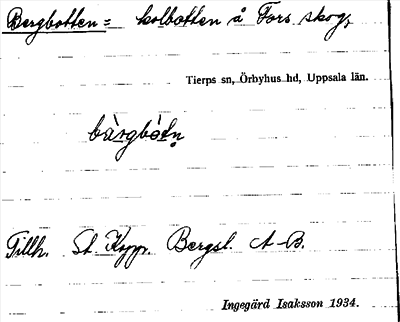 Bergbotten = kolbotten å Fors skog,
Tierps sn, Örbyhus hd, Uppsala län.
bàrgbòtn̥
Tillh. St. Kopp. Bergsl. A-B.
Ingegärd Isaksson 1934.